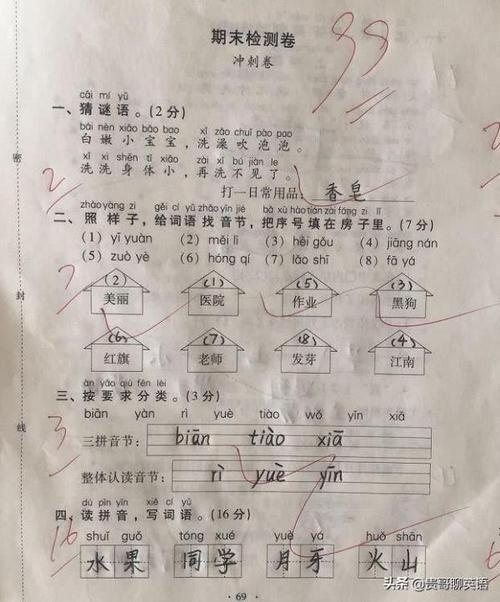 期末检测卷
冲刺卷
99
cāi mí yǔ
一、猜谜语。(2分)
bái nèn xiǎo bǎo bao xǐ zǎo chuī pào pao
白嫩小宝宝，洗澡吹泡泡。
xǐ xǐ shēn tǐ xiǎo zài xǐ bú jiàn le
洗洗身体小，再洗不见了。
2
打一日常用品：香皂
zhào yàng zi gěi cí yǔ zhǎo yīn jié bǎ xù hào tián zài fáng zi lǐ
二、照样子，给词语找音节，把序号填在房子里。(7分)
(1) yī yuàn (2) měi lì (3) hēi gǒu (4) jiāng nán
(5) zuò yè (6) hóng qí (7) lǎo shī (8) fā yá
7
(2) (1) (5) (3)
美丽 医院 作业 黑狗
(6) (7) (8) (4)
红旗 老师 发芽 江南
àn yāo qiú fēn lèi
三、按要求分类。(3分)
biān yàn rì yuè tiào wǒ yīn xiā
3
三拼音节：biān tiào xiā
整体认读音节：rì yuè yīn
dú pīn yīn xiě cí yǔ
四、读拼音，写词语。(16分)
16
shuǐ guǒ tóng xué yuè yá huǒ shān
水果 同学 月牙 火山
· 69 ·
密
封
线
头条 @贵哥聊英语